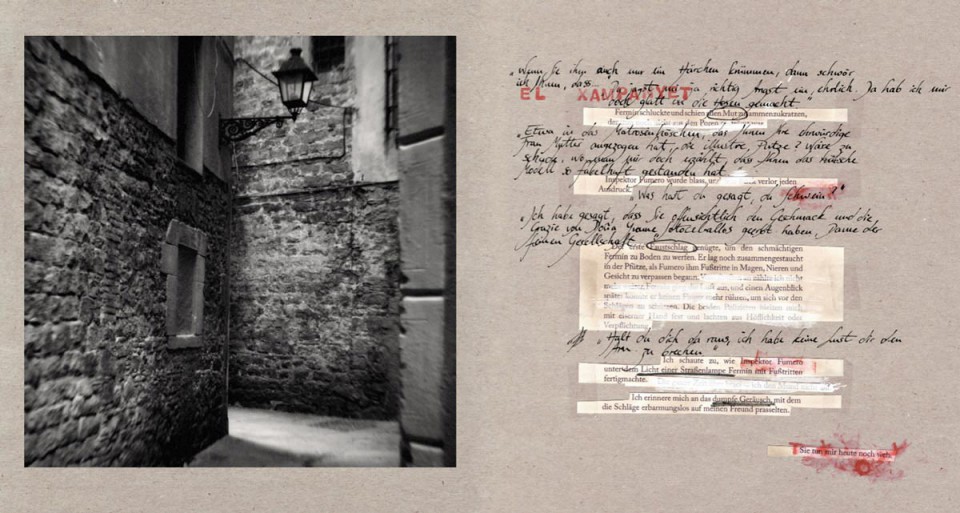 „Wenn Sie ihm auch nur ein Härchen krümmen, dann schwör
ich Ihnen, dass
jetzt richtig Angst ein, ehrlich. Da hab ich mir
EL XAMPANYET
doch glatt in die Hosen gemacht."
Fermín schluckte und schien den Mut zusammenzukratzen,
„Etwa in das Matrosenhöschen, das Ihnen Ihre ehrwürdige
Frau Mutter angezogen hat, die illustre Putze? Wäre zu
schade, wo man mir doch erzählt, dass Ihnen das hübsche
Modell so fabelhaft gestanden hat."
Inspektor Fumero wurde blass, und verlor jeden
Ausdruck.
„Was hast du gesagt, du Schwein?"
„Ich habe gesagt, dass Sie offensichtlich den Geschmack und die
Grazie von Doña Yvonne Sotoceballos geerbt haben, Dame der
feinen Gesellschaft
Der erste Faustschlag genügte, um den schmächtigen
Fermín zu Boden zu werfen. Er lag noch zusammengestaucht
in der Pfütze, als Fumero ihm Fußtritte in Magen, Nieren und
Gesicht zu verpassen begann.
Luft aus, und einen Augenblick
später konnte er keinen Finger mehr rühren, um sich vor den
Schlägen zu schützen. Die beiden Polizisten hielten mich
mit eiserner Hand fest und lachten aus Höflichkeit oder
Verpflichtung.
„Halt du dich da raus, ich habe keine Lust dir den
Arm zu brechen"
Ich schaute zu, wie Inspektor Fumero
unter dem Licht einer Straßenlampe Fermín mit Fußtritten
fertigmachte.
Ich erinnere mich an das dumpfe Geräusch, mit dem
die Schläge erbarmungslos auf meinen Freund prasselten.
Sie tun mir heute noch weh.